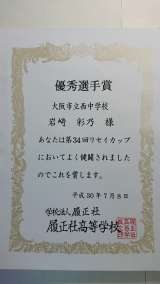 優秀選手賞
大阪市立西中学校
岩﨑 彩乃 様
あなたは第34回リセイカップ
においてよく健闘されました
のでこれを賞します。
平成30年7月8日
学校法人履正社
履正社高等学校